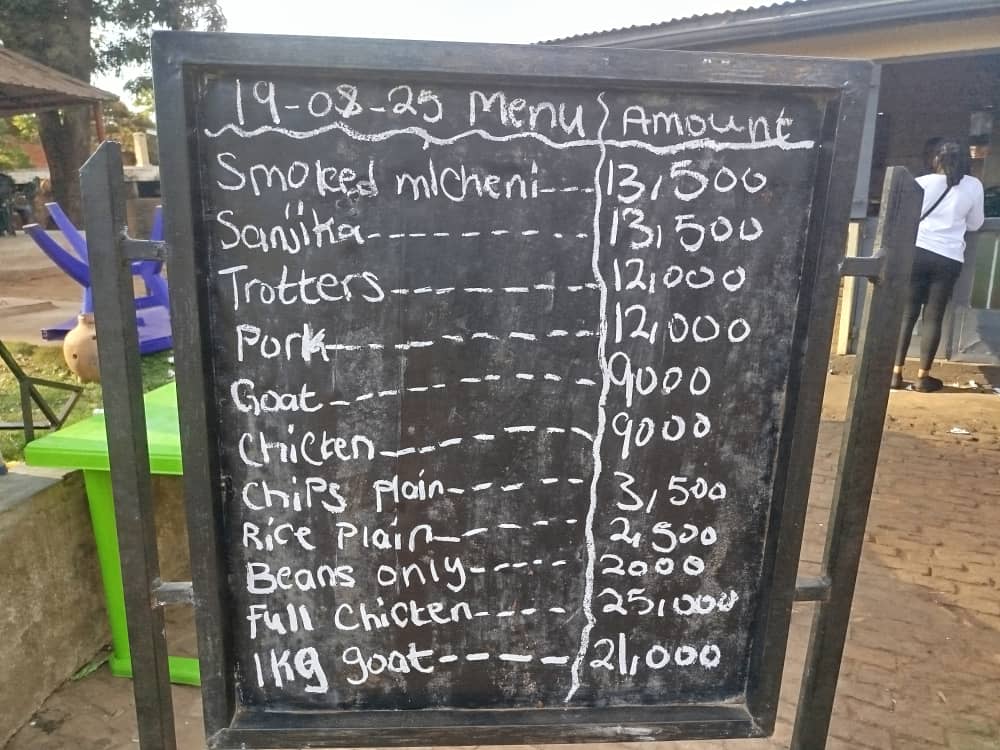 19-08-25 Menu Amount
Smoked mlcheni--- 13,500
Sanjika--------- 13,500
Trotters-------- 12,000
Pork-------- 12,000
Goat-------- 9000
Chicken------ 9000
Chips plain----- 3,500
Rice Plain----- 2,500
Beans only----- 2000
Full Chicken---- 25,000
1Kg goat----- 21,000